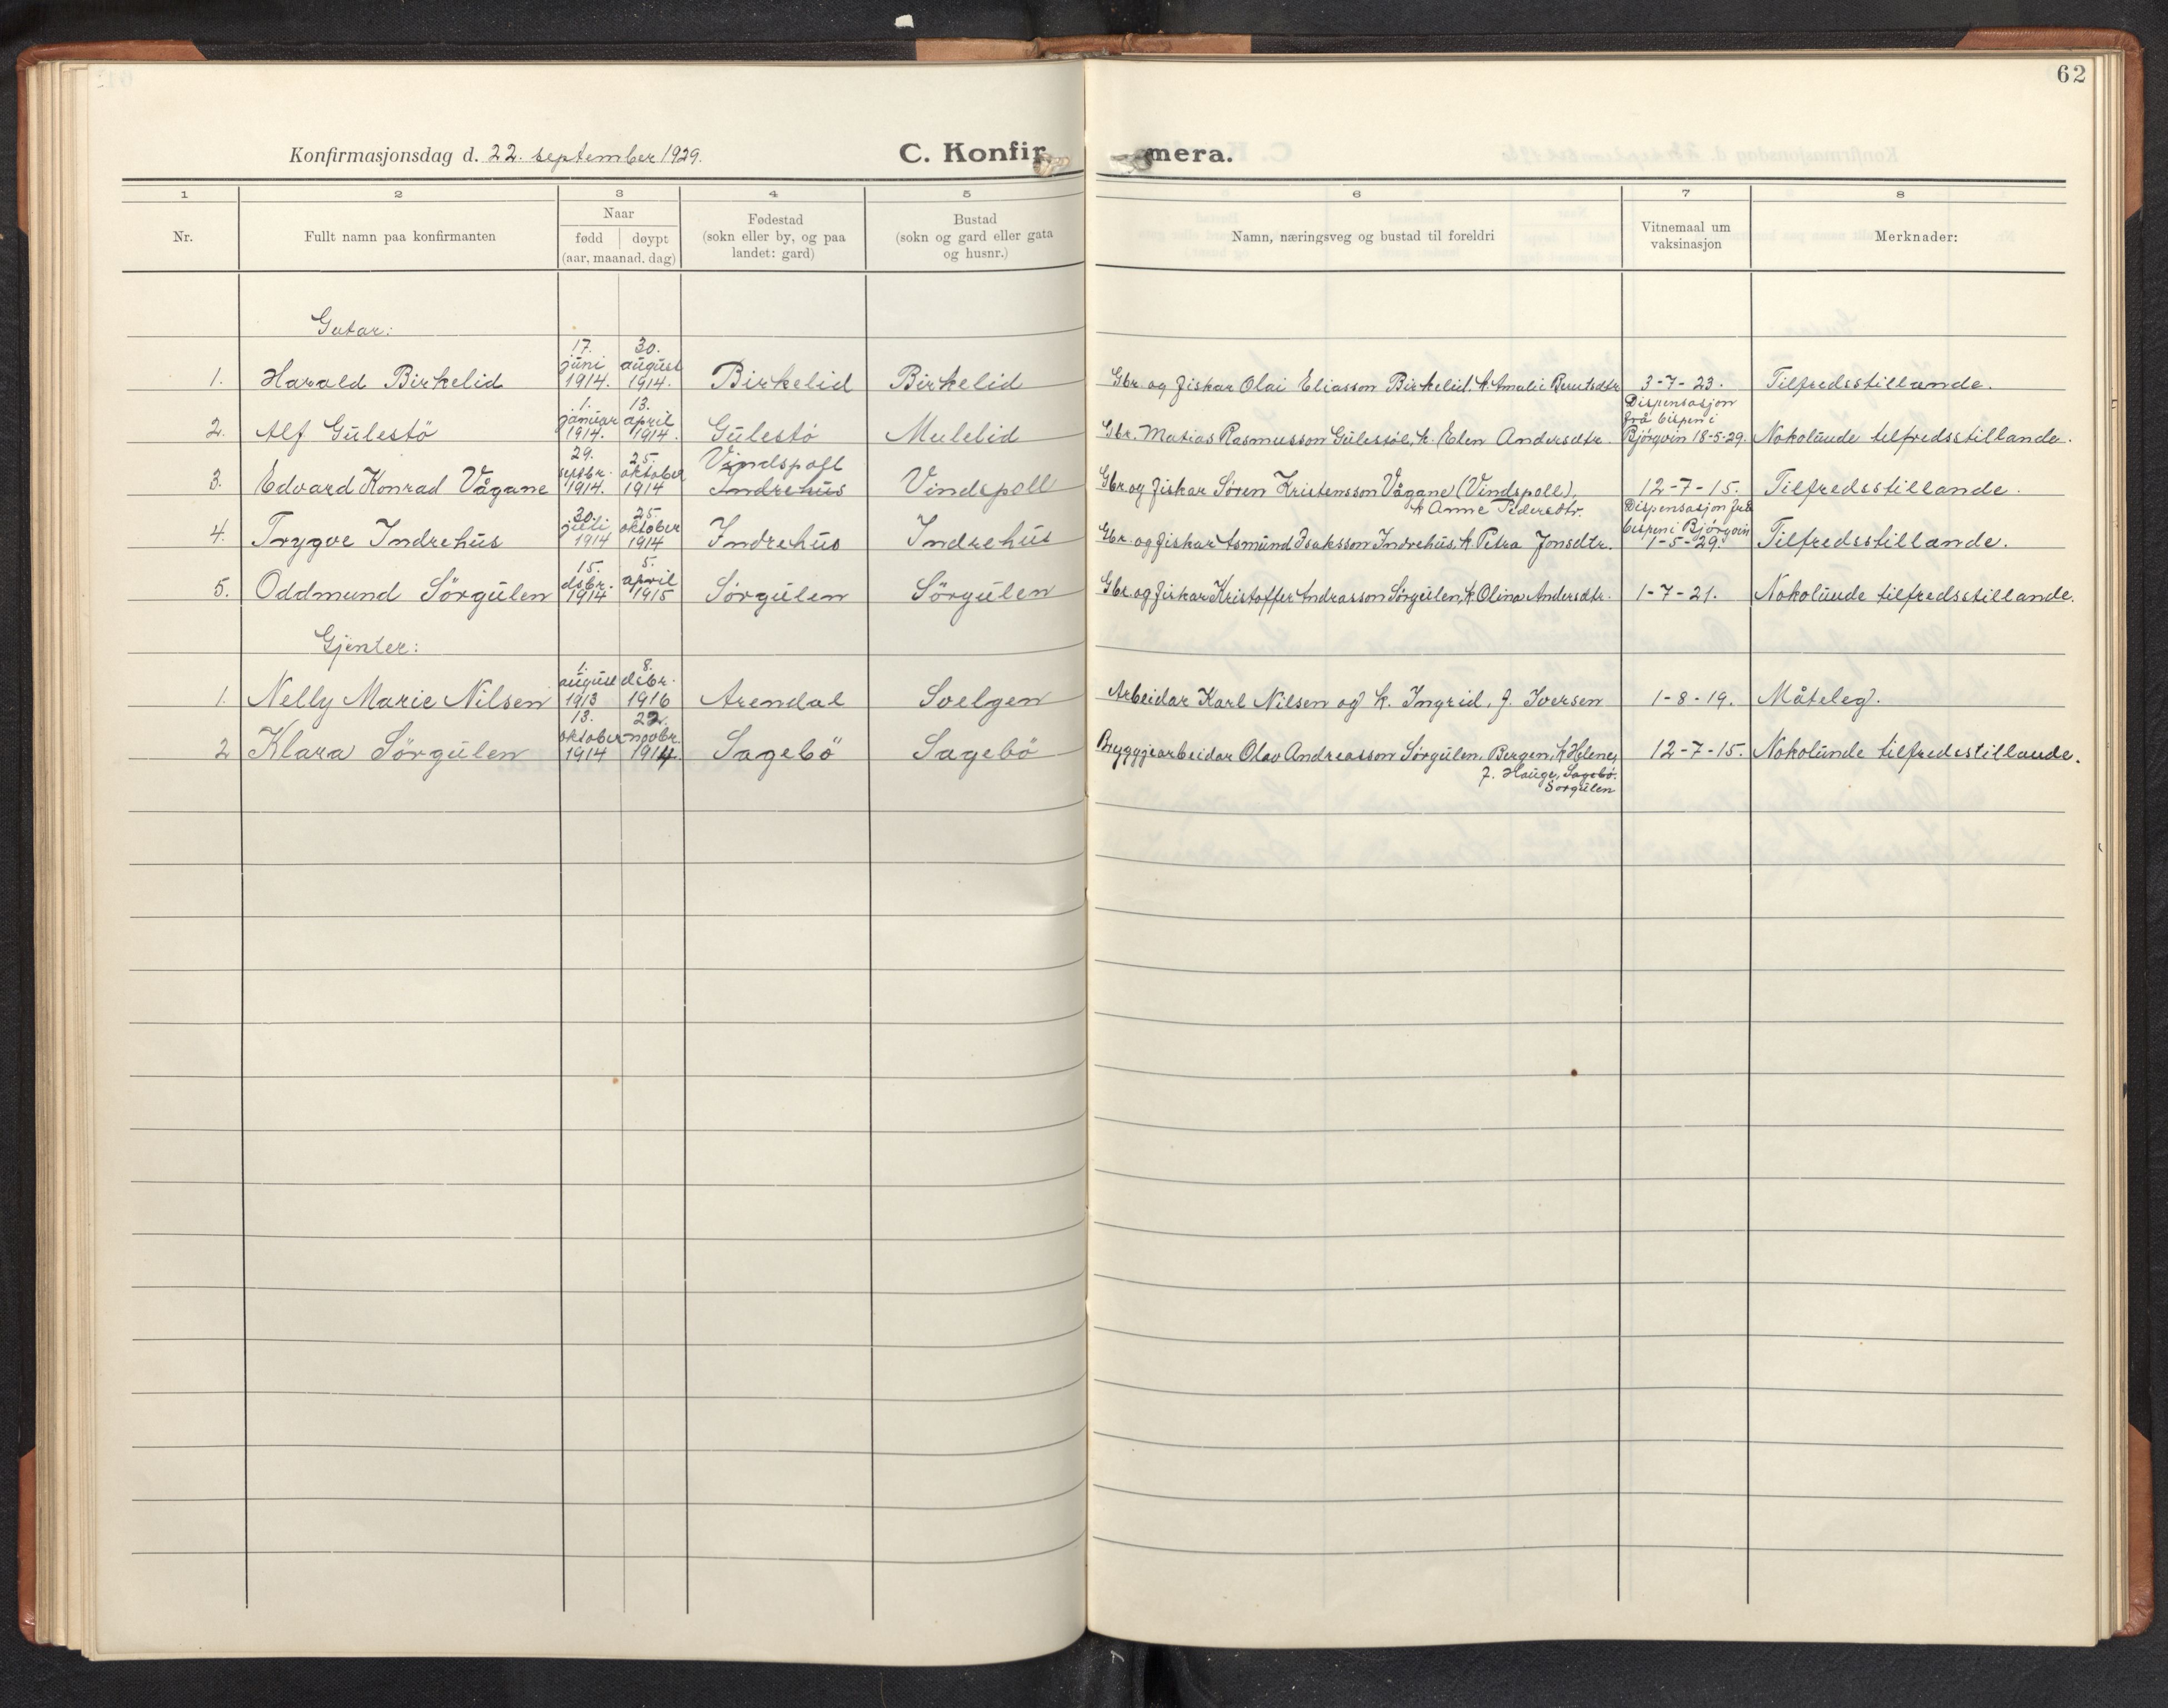 62
Konfirmasjonsdag d. 22. september 1929. C. Konfir mera.
1 2 3 4 5 6 7 8
Nr. Fullt namn paa konfirmanten Naar Fødestad Bustad Namn, næringsveg og bustad til foreldri Vitnemaal um Merknader:
fødd døypt (sokn eller by, og paa (sokn og gard eller gata vaksinasjon
(aar, maanad, dag) landet: gard) og husnr.)
Gutar:
17. 30.
juni august
1. Harald Birkelid 1914. 1914. Birkelid Birkelid Gbr. og fiskar Olai Eliasson Birkelid, k. Amalie Berntsdtr 3-7-23. Tilfredsstillande.
1. 13. Dispensasjon
januar april frå bispen i
2. Alf Gulestö 1914. 1914. Gulestö Mulelid Gbr. Matias Rasmusson Gulestöl, k. Elen Andersdtr. Bjørgvin 18-5-29. Nokolunde tilfredsstillande.
29. 25. Vindspoll
septbr. oktober
3. Edvard Konrad Vågane 1914. 1914 Indrehus Vindspoll Gbr. og fiskar Søren Kristensson Vågane (Vindspoll), 12-7-15. Tilfredsstillande.
k Anne Pedersdtr.
30. 25. Dispensasjon frå
juli oktober bispen i Bjørgvin
4. Trygve Indrehus 1914 1914 Indrehus Indrehus Gbr. og fiskar Asmund Isaksson Indrehus, k. Petra Jonsdtr. 1-5-29. Tilfredsstillande.
15. 5.
dsbr. april
5. Oddmund Sörgulen 1914 1915 Sörgulen Sörgulen Gbr. og fiskar Kristoffer Andrasson Sörgulen, k. Olina Andersdtr. 1-7-21. Nokolunde tilfredsstillande.
Gjenter:
1. 8.
august dsbr.
1. Nelly Marie Nilsen 1913 1916 Arendal Svelgen Arbeidar Karl Nilsen og k. Ingrid, f. Iversen 1-8-19. Måteleg.
13. 22.
oktober novbr.
2 Klara Sörgulen 1914 1914. Sagebö Sagebö Bryggjearbeidar Olav Andreasson Sörgulen, Bergen, k Helene, 12-7-15. Nokolunde tilfredsstillande.
f. Hauge, Sagebö.
Sörgulen